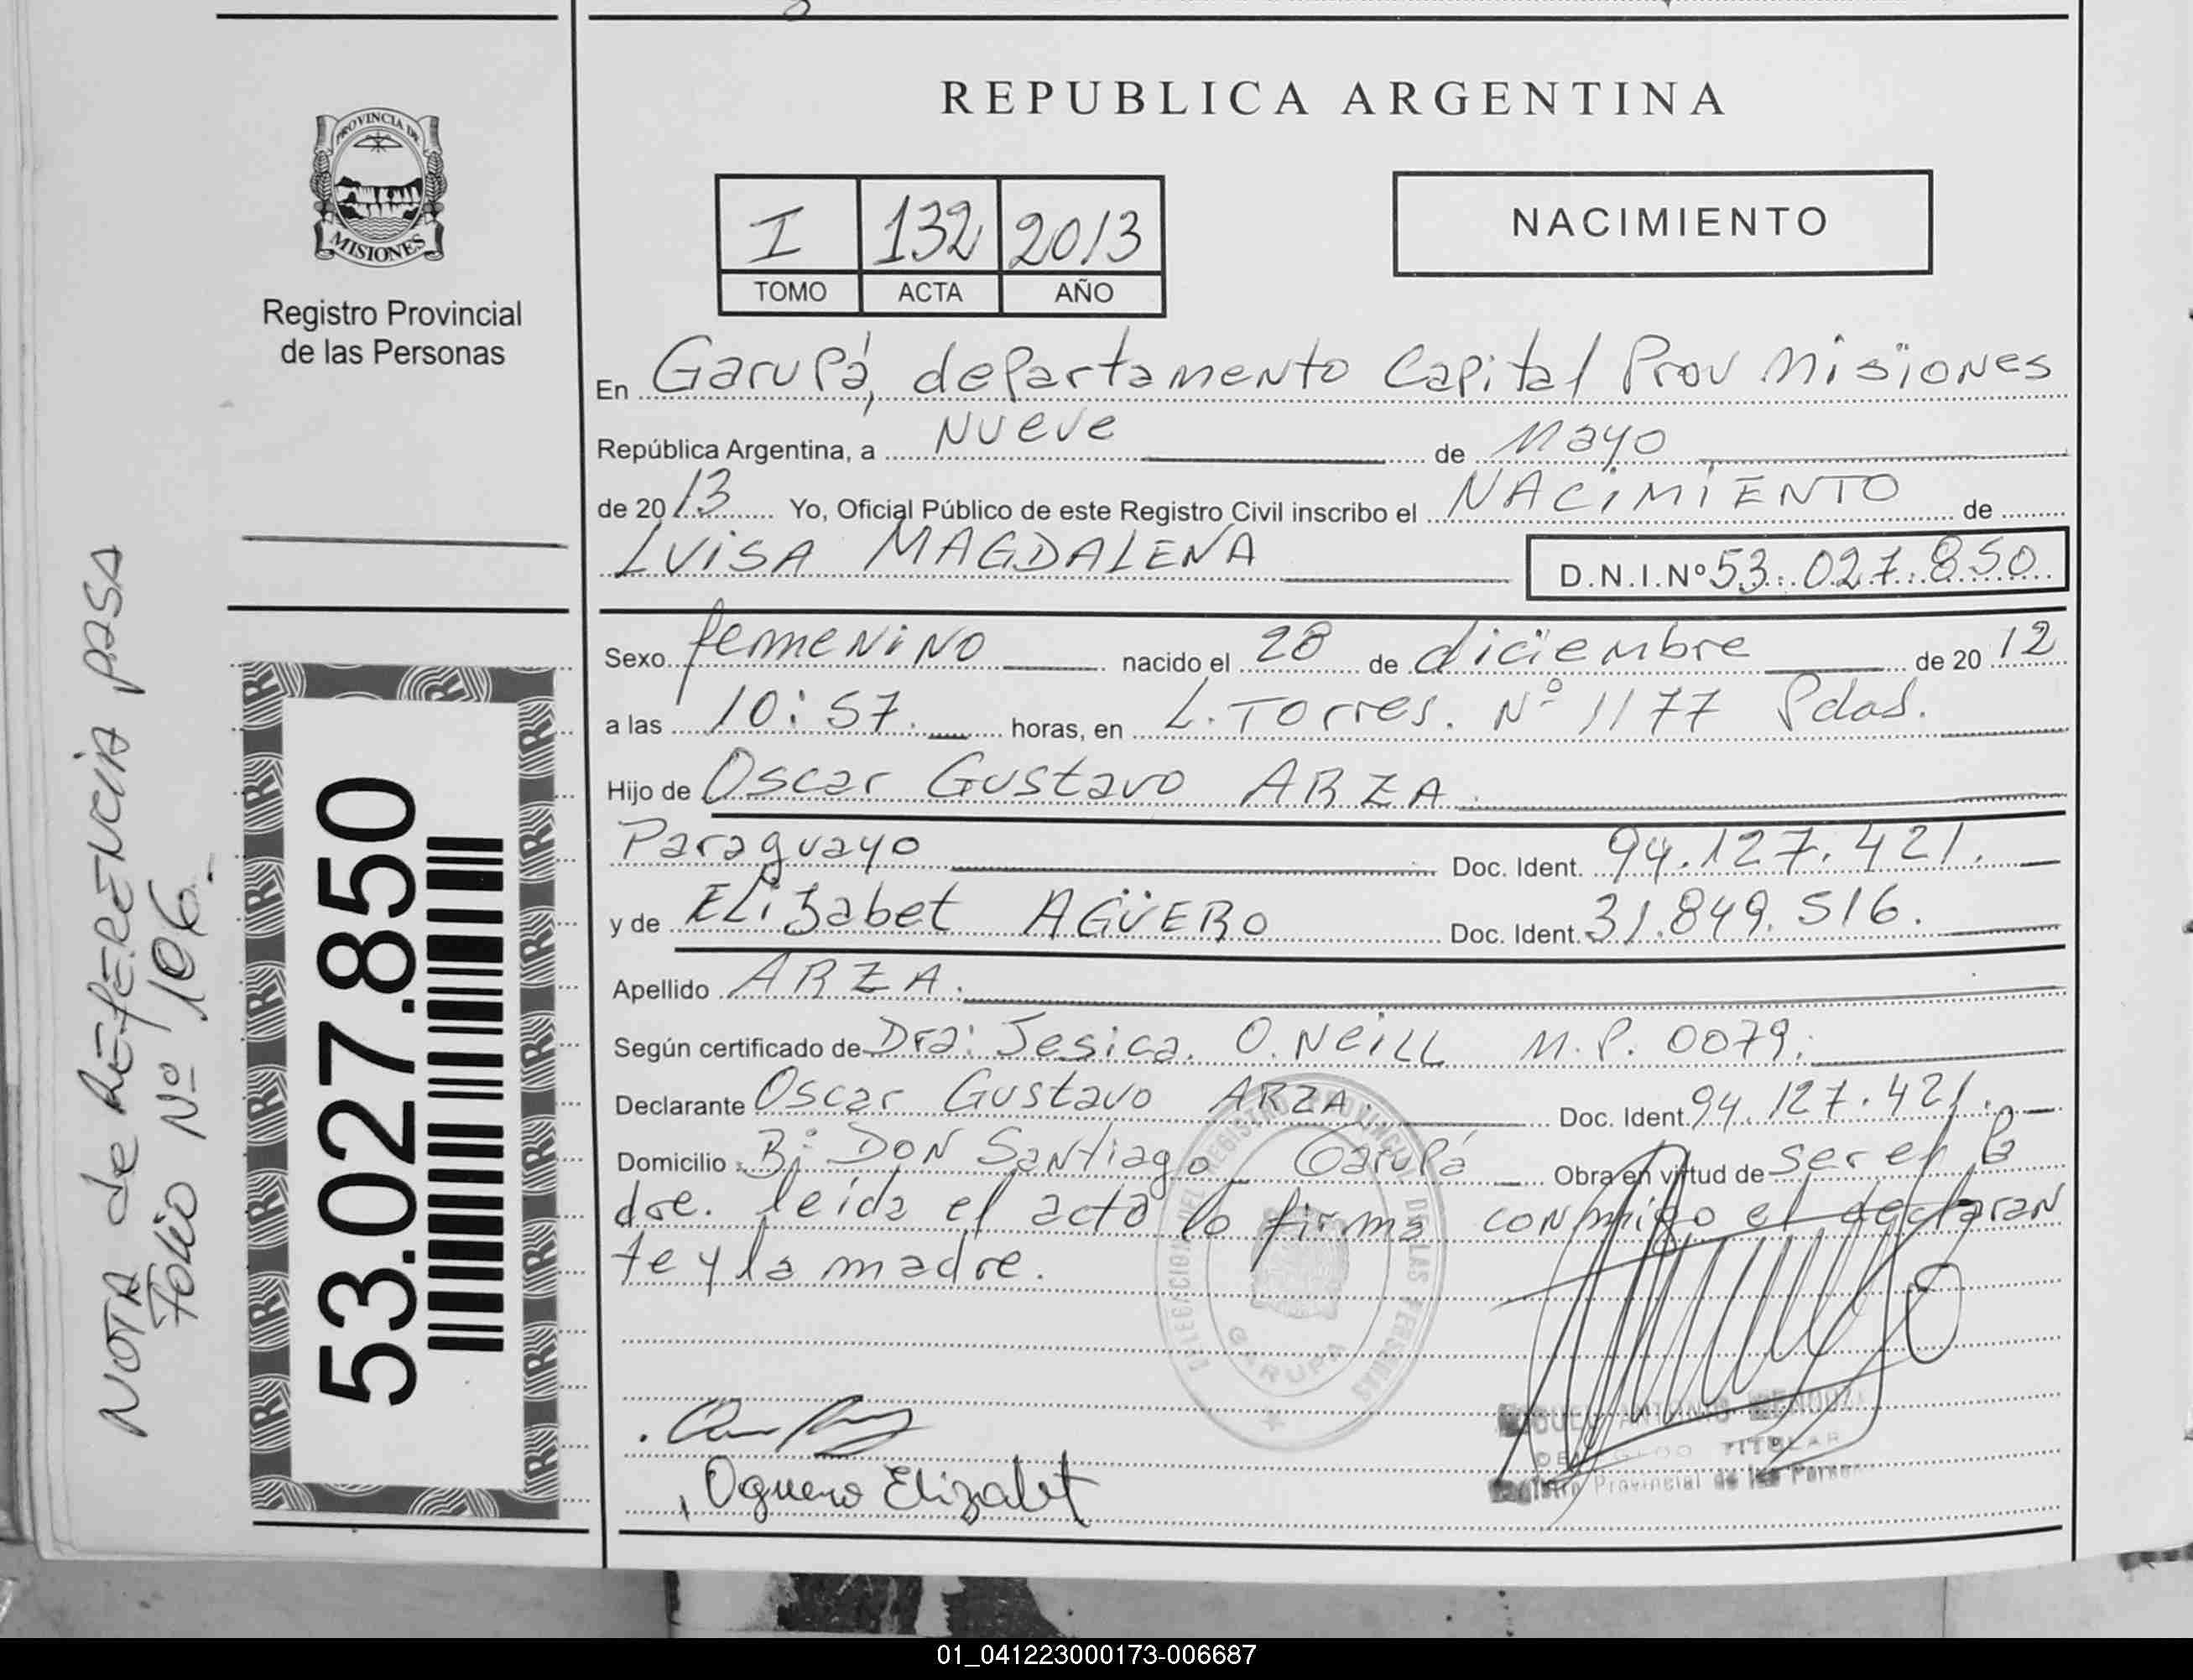 REPUBLICA ARGENTINA
PROVINCIA DE
MISIONES
Registro Provincial
de las Personas
I 132 2013
TOMO ACTA AÑO
NACIMIENTO
En Garupá, departamento Capital Prov Misiones
República Argentina, a Nueve de Mayo
de 2013 Yo, Oficial Público de este Registro Civil inscribo el NACIMIENTO de
LUISA MAGDALENA D.N.I.Nº 53.027.850
Sexo femenino nacido el 28 de diciembre de 2012
a las 10:57. horas, en L. Torres. Nº 1177 Pdas.
Hijo de Oscar Gustavo ARZA.
Paraguayo Doc. Ident. 94.127.421.
y de Elizabet AGÜERO Doc. Ident. 31.849.516.
Apellido ARZA.
Según certificado de Dra: Jesica. O. Neill M.P. 0079.
Declarante Oscar Gustavo ARZA. Doc. Ident. 94.127.421.
Domicilio Bº DON Santiago Garupá Obra en virtud de ser el Pa
dre. leida el acta la firma conmigo el declaran
te y la madre.
DELEGACION DEL REGISTRO PROVINCIAL DE LAS PERSONAS
GARUPA
Aguero Elizabet
MIGUEL ANTONIO MENDOZA
DELEGADO TITULAR
Registro Provincial de las Personas
53.027.850
NOTA de REFERENCIA PASA
Folio Nº 106.-
01_041223000173-006687